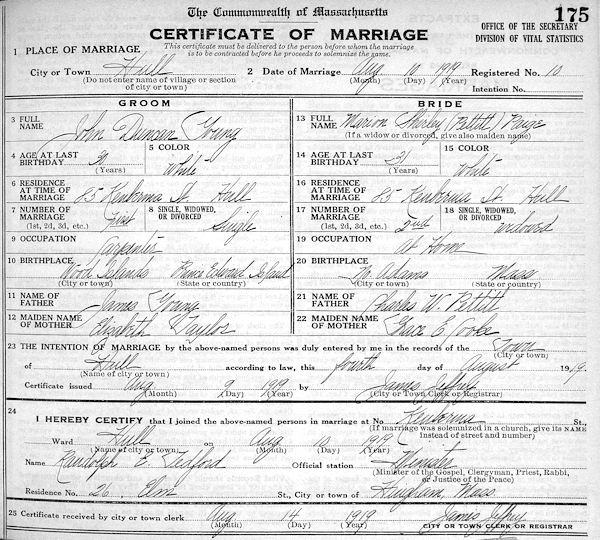 The Commonwealth of Massachusetts
175
CERTIFICATE OF MARRIAGE
This certificate must be delivered to the person before whom the marriage
is to be contracted before he proceeds to solemnize the same.
OFFICE OF THE SECRETARY
DIVISION OF VITAL STATISTICS
1 PLACE OF MARRIAGE
City or Town Hull
(Do not enter name of village or section
of city or town)
2 Date of Marriage Aug 10 1919
(Month) (Day) (Year)
Registered No. 10
Intention No.
GROOM
3 FULL NAME John Duncan Young
4 AGE AT LAST BIRTHDAY
(Years)
5 COLOR White
6 RESIDENCE AT TIME OF MARRIAGE 85 Kenberma St. Hull
7 NUMBER OF MARRIAGE First
(1st, 2d, 3d, etc.)
8 SINGLE, WIDOWED, OR DIVORCED Single
9 OCCUPATION Carpenter
10 BIRTHPLACE Wood Islands Prince Edward Island
(City or town) (State or country)
11 NAME OF FATHER James Young
12 MAIDEN NAME OF MOTHER Elizabeth Taylor
BRIDE
13 FULL NAME Marion Shirley (Pettitt) Paige
(If a widow or divorced, give also maiden name)
14 AGE AT LAST BIRTHDAY 31
(Years)
15 COLOR White
16 RESIDENCE AT TIME OF MARRIAGE 85 Kenberma St. Hull
17 NUMBER OF MARRIAGE 2nd
(1st, 2d, 3d, etc.)
18 SINGLE, WIDOWED, OR DIVORCED widowed
19 OCCUPATION At Home
20 BIRTHPLACE No. Adams Mass
(City or town) (State or country)
21 NAME OF FATHER Charles W. Pettitt
22 MAIDEN NAME OF MOTHER E.
23 THE INTENTION OF MARRIAGE by the above-named persons was duly entered by me in the records of the Town
(City or town)
of Hull according to law, this fourth day of August 1919.
(Name of city or town)
Certificate issued Aug 9 1919 by James Jeffrey
(Month) (Day) (Year) (City or Town Clerk or Registrar)
24
I HEREBY CERTIFY that I joined the above-named persons in marriage at No Kenberma St.,
(If marriage was solemnized in a church, give its NAME
instead of street and number)
Ward Hull on Aug 10 1919
(Name of city or town) (Month) (Day) (Year)
Name Randolph E. Tedford Official station Minister
(Minister of the Gospel, Clergyman, Priest, Rabbi,
or Justice of the Peace)
Residence No. 26 Elm St., City or town of Hingham, Mass.
25 Certificate received by city or town clerk Aug 14 1919 James Jeffrey
(Month) (Day) (Year) CITY OR TOWN CLERK OR REGISTRAR